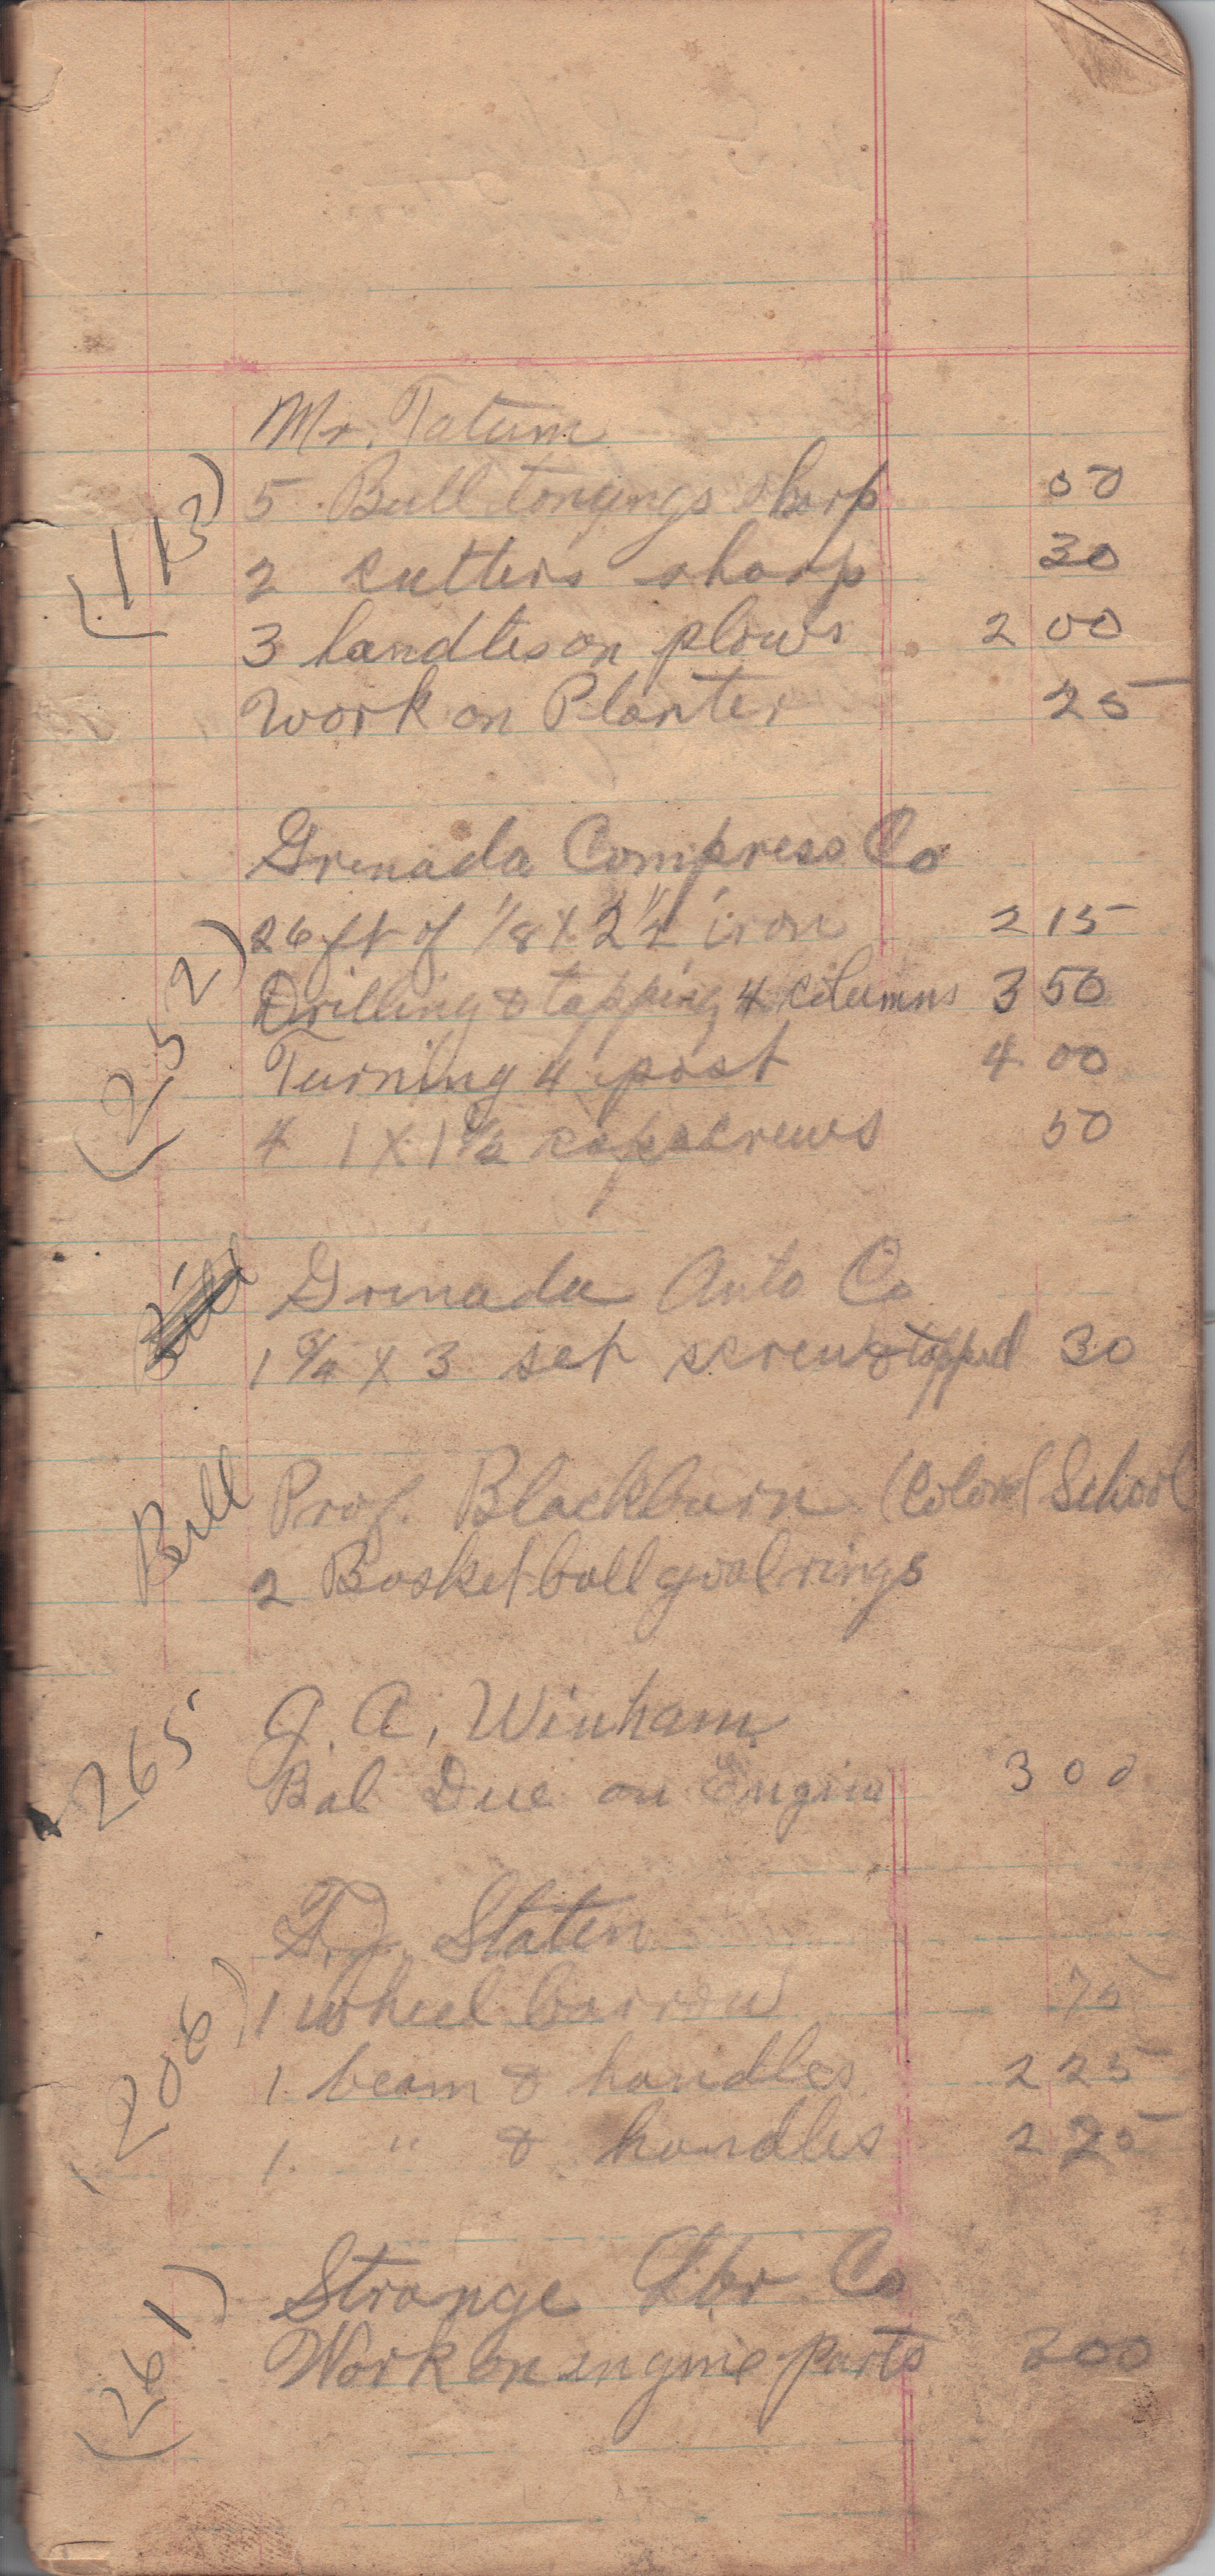 Mr. Tatum
(113)
5 Bull tongungs sharp 50
2 cutters sharp 30
3 handles on plows 2 00
Work on Planter 25
Grenada Compress Co
(252)
26 ft of 1/8 X 2 1/2 iron 2 15
Drilling & tapping 4 columns 3 50
Turning 4 post 4 00
4 1 X 1 1/2 capscrews 50
Bill Grenada Auto Co
1 3/4 X 3 set screw & tapped 30
Bill Prof. Blackburn (Colored School
2 Basket ball goal rings
265 J. A. Winham
Bal Due on Engine 3 00
Staten
206) 1 wheel barrow 75
1 beam & handles 2 25
1 " & handles 2 25
(261) Strange Lbr. Co
Work on engine parts 300